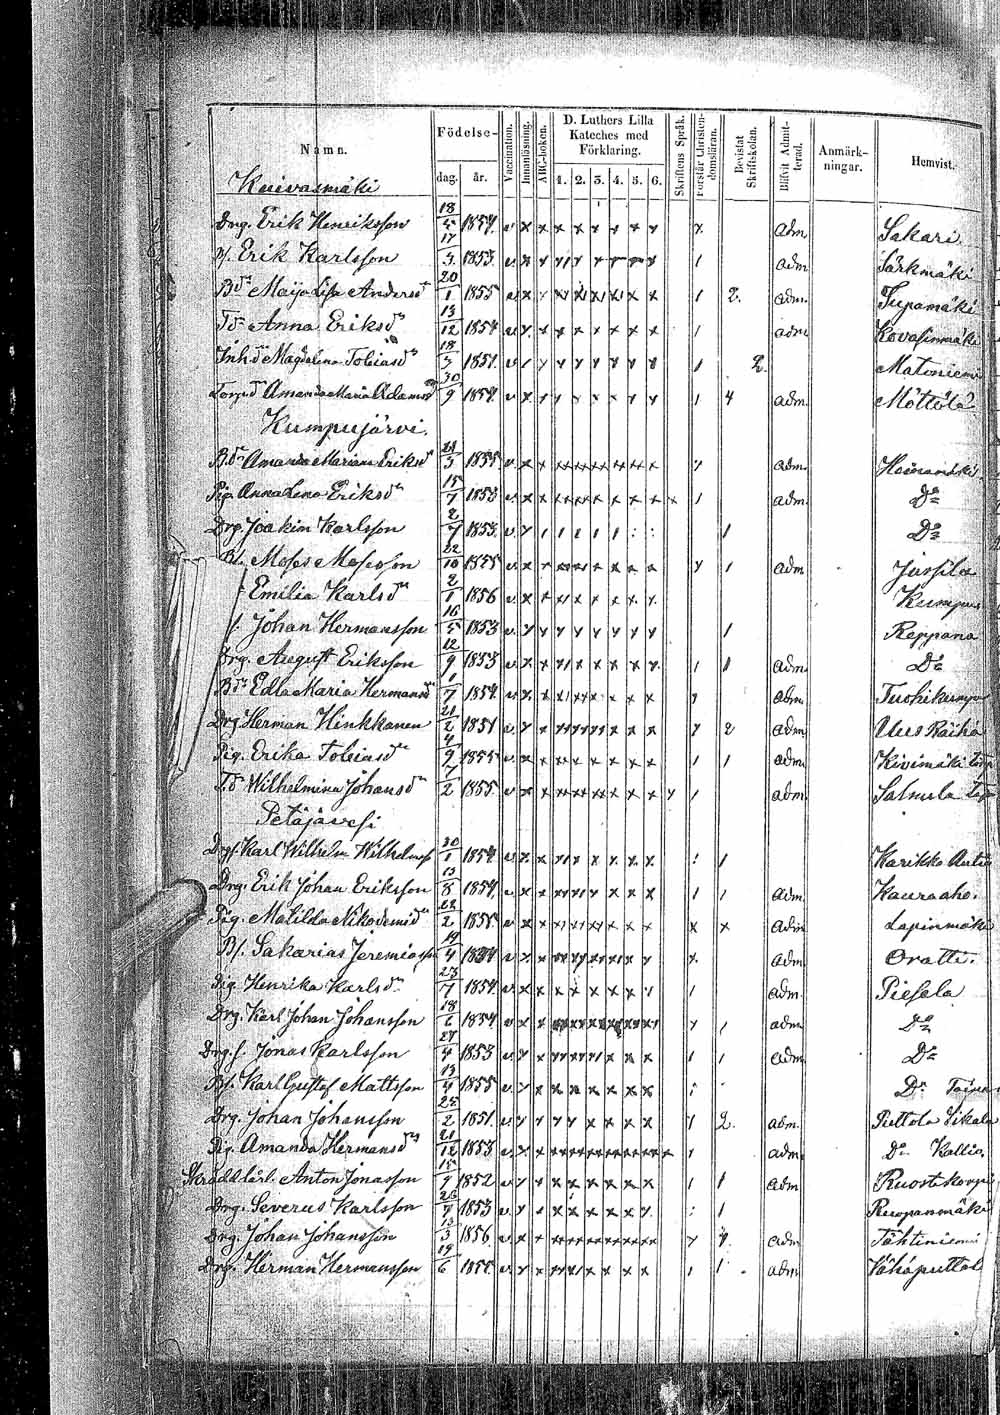 Namn. Födelse- dag. år. Vaccination. Innanläsning. ABC-boken. D. Luthers Lilla Kateches med Förklaring. 1. 2. 3. 4. 5. 6. Skriftens Språk. Förstår Christendomsläran. Bevistat Skriftskolan. Blifvit Admitterad. Anmärkningar. Hemvist.
Kuivasmäki
Drg. Erik Henriksson 18/5 1854. adm Sakari
Erik Karlsson 17/3 1853. adm Särkmäki
Bdr Maija Lisa Andersdr 20/1 1855 2. adm. Tupamäki
Tdr Anna Eriksdr 13/12 1854 adm Kovasinmäki
Inhdr Magdalena Tobiasdr 18/3 1851. 2. Matoniemi
Torpdr Amanda Maria Adamsdr 30/9 1854. 4 adm. Möttölä
Kumpujärvi.
Bdr Amanda Mariana Eriksdr 21/3 1855. adm. Heinämäki
Pig. Anna Lena Eriksdr 15/7 1853 adm. Do
Drg. Joakim Karlsson 2/7 1853. Do
Bs. Moses Mosesson 22/10 1855 adm Jussila
Emilia Karlsdr 2/1 1856 Kumpu
Johan Hermansson 16/5 1853 Reppana
Drg. August Eriksson 12/9 1853 adm. Do
Bdr Edla Maria Hermansdr 1/7 1854. adm. Tuohikumpu
Drg Herman Hinkkanen 21/2 1851 2 adm Uus Räihä
Pig. Erika Tobiasdr 4/9 1855 adm. Kivimäki torp
T.dr Wilhelmina Johansdr 7/2 1855. adm. Salmela
Petäjävesi
Karl Wilhelm 30/1 1854 Karikko
Drg. Erik Johan Eriksson 13/8 1854. adm. Kauraaho.
Pig. Matilda Nikodemidr 22/2 1855. adm Lapinmäki
Bs. Sakarias Jeremiasson 19/4 1854 adm. Oratti.
Pig Henrika Karlsdr 23/7 1854. adm. Piesala
Drg. Karl Johan Johansson 18/6 1854 adm Do
Drg. s. Jonas Karlsson 24/4 1853 adm. Do
Bs. Karl Gustaf Mattsson 13/4 1855 Do
Drg. Johan Johansson 28/2 1851. 2. adm. Puttola Sikala
Pig. Amanda Hermansdr 21/12 1853 adm. Do Kallio.
Skräddlärl. Anton Jonasson 15/9 1852 adm Ruostekorpi
Drg. Severus Karlsson 26/4 1853 Ruopanmäki
Drg. Johan Johansson 13/3 1856. adm Tähtiniemi
Drg. Herman Hermansson 19/6 1855. adm Vähäputtol